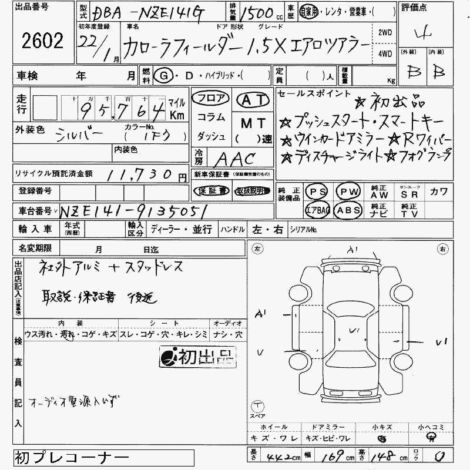 出品番号 2602
型式 DBA-NZE141G
排気量 1500cc
車歴 自家用・レンタ・営業車・( )
評価点 4
初年度登録 22/1月
車名 ドア 形状 グレード
カローラフィールダー 1.5X エアロツアラー
2WD
4WD
(外装) B (内装) B
車検 年 月
燃料 G・D・ハイブリッド・( )
定員( )人
積載量 Kg
走行 95,764 マイル Km
フロア AT
コラム MT
ダッシュ ( )速
セールスポイント
★初出品
★プッシュスタート・スマートキー
★ウインカードアミラー★Rワイパー
★ディスチャージライト★フォグランプ
外装色 シルバー
カラーNo. (1F7)
内装色
冷房 AAC
リサイクル預託済金額 11,730円
新車保証書(保証継承の可能なもの)
登録番号
保証書 取扱説明書
純正装備品 PS PW 純正AW サンルーフSR カワ
エアBAG ABS 純正ナビ 純正TV
車台番号 NZE141-9135051
輸入車 年式(西暦) 輸入区分 ディーラー・並行 ハンドル 左・右 シリアルNo.
名変期限 月 日迄
出品店記入(注意事項)
社外アルミ+スタッドレス
取説・保証書 後送
検査員記入
内装 シート オーディオ
ウス汚れ・汚れ・コゲ・キズ スレ・コゲ・穴・キレ・シミ ナシ・穴
初出品
オーディオ電源入いず
左 右
A1 A1
V U
スペア
ホイール ドアミラー 小キズ 小ヘコミ
キズ・ワレ キズ・ヒビ・ワレ
初プレコーナー
長さ 442cm 幅 169cm 高さ 148cm 0